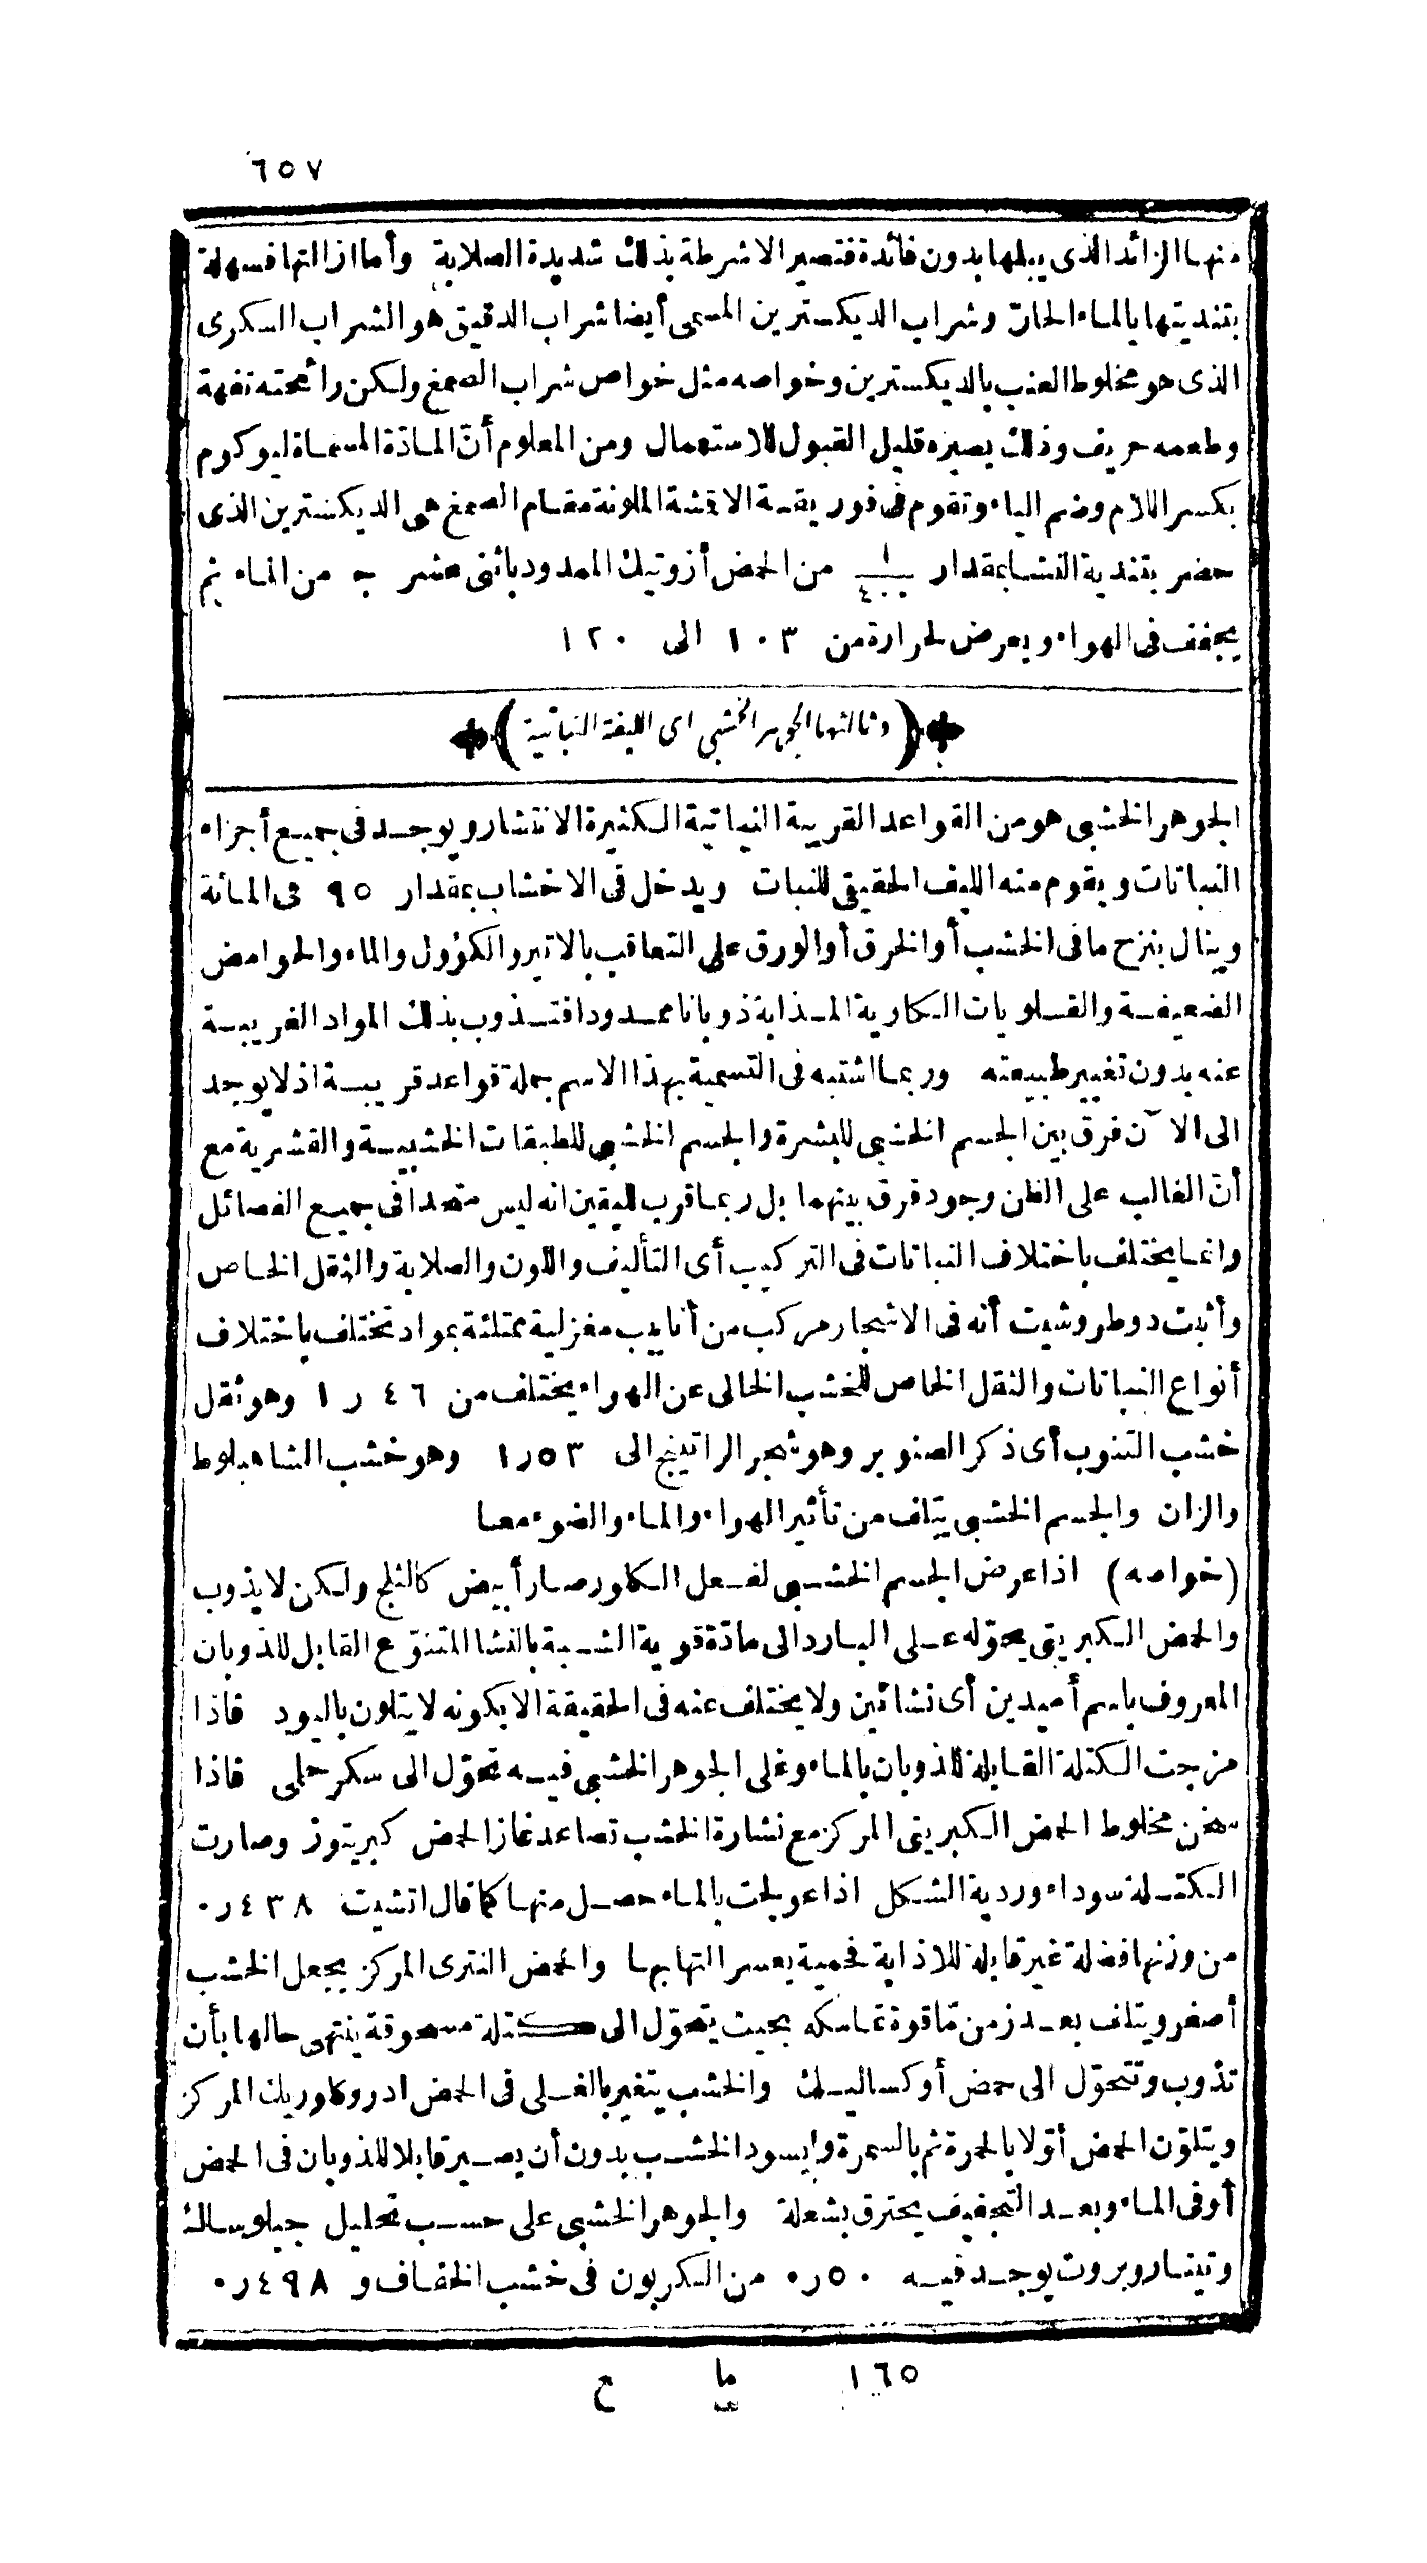 ٦٥٧
منها الزائد الذى يبلها بدون فائدة فتصير الاشرطة بذلك شديدة الصلابة وأما ازالتها فسهلة
بتنديتها بالماء الحار وشراب الديكسترين المسمى أيضا شراب الدقيق هو الشراب السكرى
الذى هو مخلوط العنب بالديكسترين وخواصه مثل خواص شراب الصمغ ولكن رائحته تفهة
وطعمه حريف وذلك يصيره قليل القبول للاستعمال ومن المعلوم أنّ المادّة المسماة ليوكوم
بكسر اللام وضم الياء وتقوم فى فوريقة الاقشة الملونة مقام الصمغ هى الديكسترين الذى
حضر بتندية النشا بمقدار من الحمض أزوتيك الممدود باثنى عشر جـ من الماء ثم
يجفف فى الهواء ويعرض لحرارة من ١٠٣ الى ١٢٠
(وثالثها الجوهر الخشبى اى الليفة النباتية)
الجوهر الخشبى هو من القواعد القريبة النباتية الكثيرة الانتشار ويوجد فى جميع أجزاء
النباتات ويقوم منه الليف الحقيقى للنبات ويدخل فى الاخشاب بمقدار ٩٥ فى المائة
وينال بنزح ما فى الخشب أو الخرق أو الورق على التعاقب بالاتير والكؤول والماء والحوامض
الضعيفة والقلويات الكاوية المذابة ذوبانا ممدودا فتذوب بذلك المواد الغريبة
عنه بدون تغيير طبيعته وربما اشتبه فى التسمية بهذا الاسم جملة قواعد قريبة اذ لا يوجد
الى الآن فرق بين الجسم الخشبى للبشرة والجسم الخشبى للطبقات الخشبية والقشرية مع
أنّ الغالب على الظن وجود فرق بينهما بل ربما قرب لليقين انه ليس متحدا فى جميع الفصائل
وانما يختلف باختلاف النباتات فى التركيب أى التأليف واللون والصلابة والثقل الخاص
وأثبت دوطروشيت أنه فى الاشجار مركب من أنابيب مغزلية ممتلئة بمواد تختلف باختلاف
أنواع النباتات والثقل الخاص للخشب الخالى عن الهواء يختلف من ٤٦ ر ١ وهو ثقل
خشب التنوب أى ذكر الصنوبر وهو شجر الراتينج الى ٥٣ر١ وهو خشب الشاهبلوط
والزان والجسم الخشبى يتلف من تأثير الهواء والماء والضوء معا
(خواصه) اذا عرض الجسم الخشبى لفعل الكلور صار أبيض كالثلج ولكن لا يذوب
والحمض الكبريتى يحوّله على البارد الى مادّة قوية الشبه بالنشا المتنوّع القابل للذوبان
المعروف باسم أميدين أى نشائين ولا يختلف عنه فى الحقيقة الا بكونه لا يتلون باليود فاذا
مزجت الكتلة القابلة للذوبان بالماء وغلى الجوهر الخشبى فيه تحوّل الى سكر حلمى فاذا
سخن مخلوط الحمض الكبريتى المركز مع نشارة الخشب تصاعد غاز الحمض كبريتوز وصارت
الكتلة سوداء وردية الشكل اذا عولجت بالماء حصل منها كما قال اتشيت ٤٣٨ر٠
من وزنها فضلة غير قابلة للاذابة فحمية يعسر التهابها والحمض النترى المركز يجعل الخشب
أصفر ويتلف بعد زمن مّا قوة تماسكه بحيث يتحوّل الى كتلة مسحوقة ينتهى حالها بأن
تذوب وتتحوّل الى حمض أوكساليك والخشب يتغير بالغلى فى الحمض ادروكلوريك المركز
ويتلوّن الحمض أوّلا بالحمرة ثم بالسمرة وايسود الخشب بدون أن يصير قابلا للذوبان فى الحمض
أو فى الماء وبعد التجفيف يحترق بشعلة والجوهر الخشبى على حسب تحليل جيلوساك
وتينار وبروت يوجد فيه ٥٠ر٠ من الكربون فى خشب الخفاف و ٤٩٨ر٠
١٦٥ ما ع